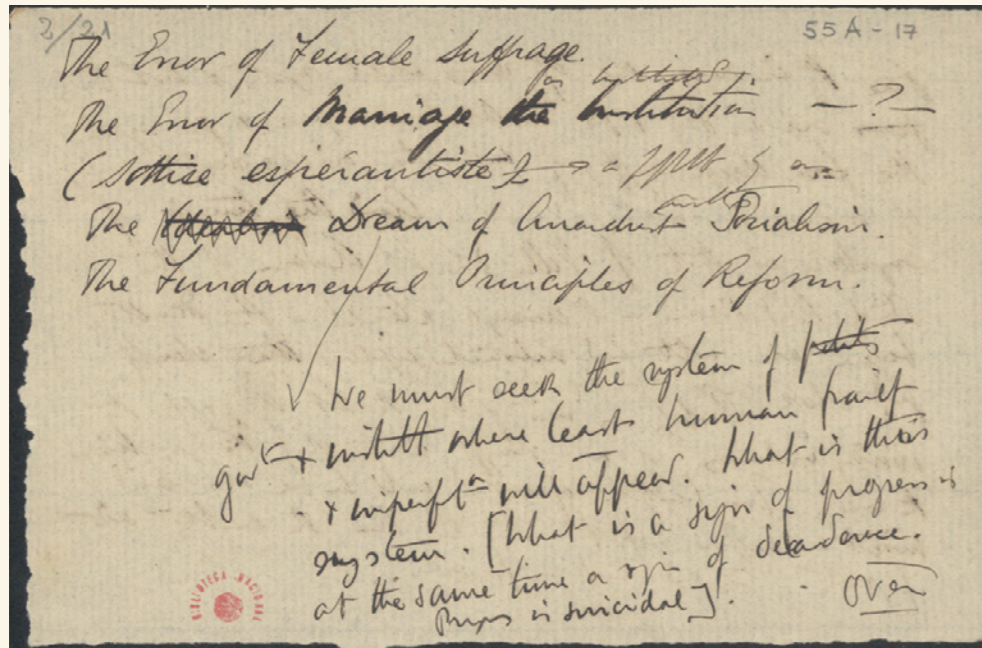 2/21
55A-17
The Error of Female Suffrage.
The Error of Marriage the Institution — ? —
(Sottise espérantiste)
The Dream of Anarchist Socialism.
The Fundamental Principles of Reform.
We must seek the system of
govt + instittn where least human frailty
+ imperftn will appear. What is this
system. [What is a sign of progress is
at the same time a sign of decadence.
Progress is suicidal].
Over
BIBLIOTECA NACIONAL